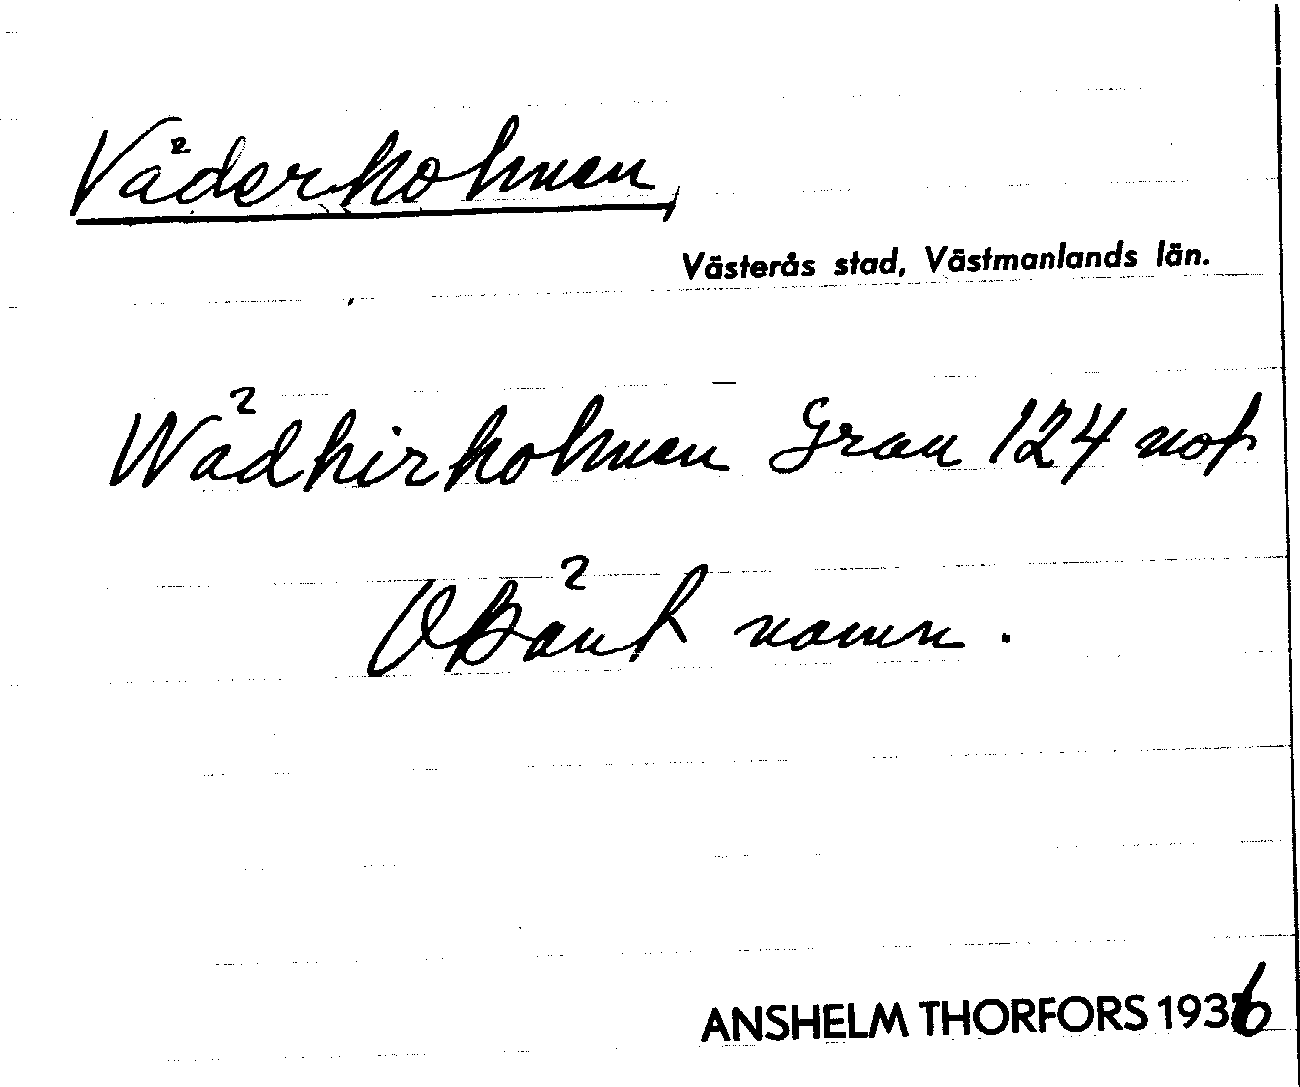 Väderholmen,
Västerås stad, Västmanlands län.
Wädhirholmen Grau 124 not
Okänt namn.
ANSHELM THORFORS 1936